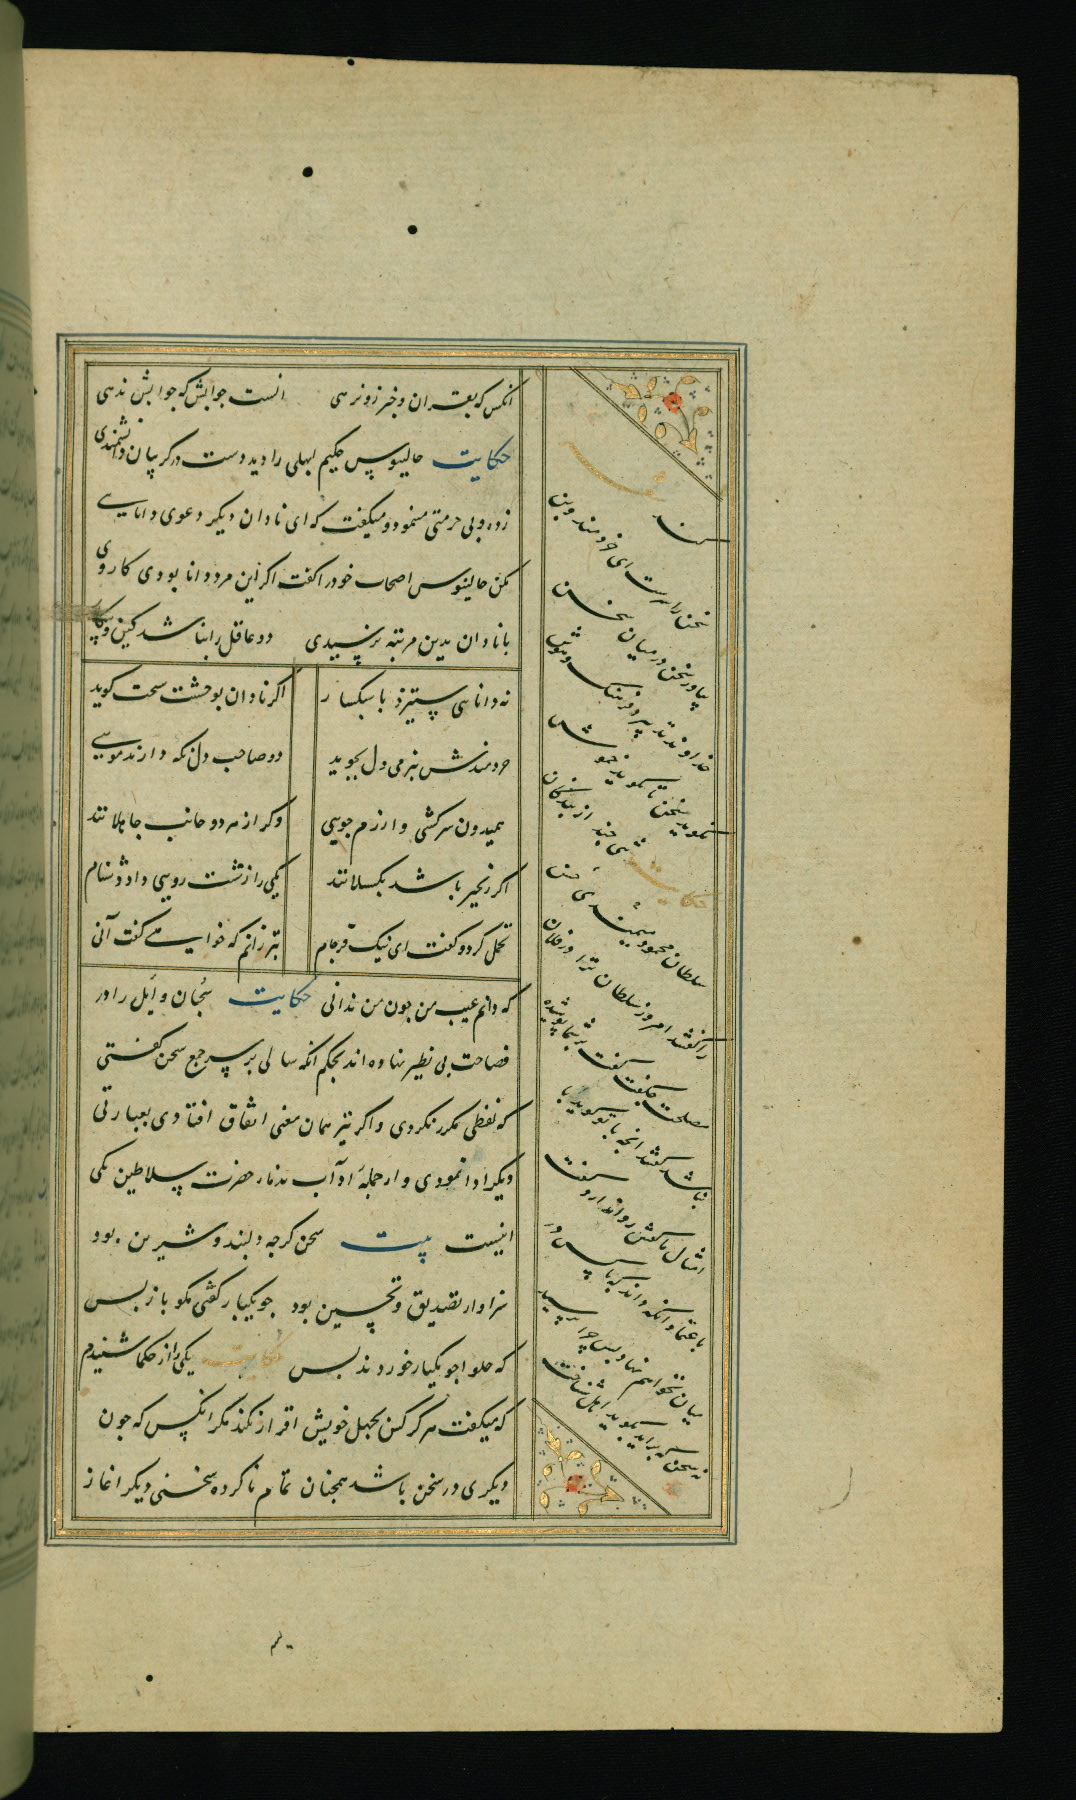 انکس که بقران و خبر زو نرهی    انست جوابش که جوابش ندهی
حکایت جالینوس حکیم ابلهی را دید دست در کریبان دانشمندی
زده و بی حرمتی مینمود و میکفت که ای نادان دیکر دعوی دانایی
مکن جالینوس اصحاب خود را کفت اکر این مرد دانا بودی کار وی
با نادان بدین مرتبه نرسیدی    دو عاقل را نباشد کین و پیکار
نه دانایی ستیزد با سبکسار    اکر نادان بوحشت سخت کوید
خردمندش بنرمی دل بجوید    دو صاحب دل نکه دارند مویی
همیدون سرکشی و ازرم جویی    وکر از هر دو جانب جاهلانند
اکر زنجیر باشد بکسلانند    یکی را زشت رویی داد دشنام
تحمل کرد و کفت ای نیک فرجام    بتر زانم که خواهی کفت آنی
که دانم عیب من چون من ندانی    حکایت    سحبان وایل را در
فصاحت بی نظیر نهاده اند بحکم انکه سالی بر سر جمع سخن کفتی
که لفظی مکرر نکردی و اکر نیز همان معنی اتفاق افتادی بعبارتی
دیکر ادا نمودی و از جمله اداب ندماء حضرت سلاطین یکی
اینست    بیت    سخن کرچه دلبند و شیرین بود
سزاوار تصدیق و تحسین بود    چو یکبار کفتی مکو باز پس
که حلوا چو یکبار خوردند بس    حکایت    یکی را از حکما شنیدم
که میکفت هرکز کس بجهل خویش اقرار نکند مکر انکس که چون
دیکری در سخن باشد همچنان تمام ناکرده سخنی دیکر اغاز
کند
سخن را سرست ای خردمند و بن
میاور سخن در میان سخن
خداوند تدبیر و فرهنک و هوش
نکوید سخن تا نبیند خموش
حکایت    تنی چند از بندکان
سلطان محمود میمندی حسن
را کفتند امروز سلطان ترا در فلان
مصلحت چه کفت کفت بر شما پوشیده
نباشد کفتند انچه با تو کوید با
امثال ما کفتن روا ندارد کفت
باعتماد انکه داند که با کس در
میان نخواهم نهاد پس چرا میپرسید
نه هر سخن که براید بکوید اهل شناخت